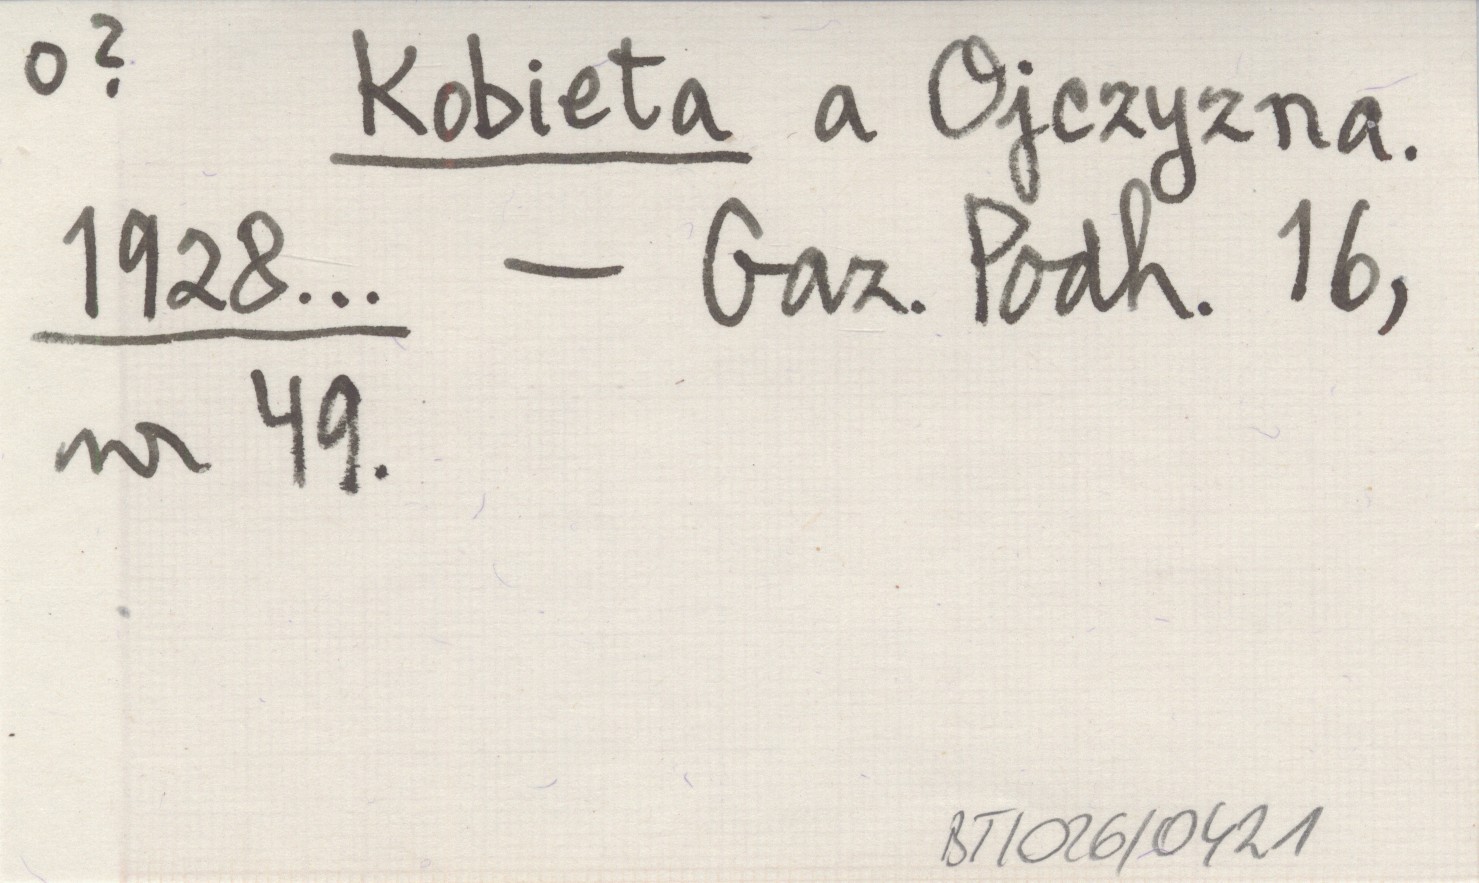 o? Kobieta a Ojczyzna.
1928... — Gaz. Podh. 16,
nr 49.
BT/026/0421